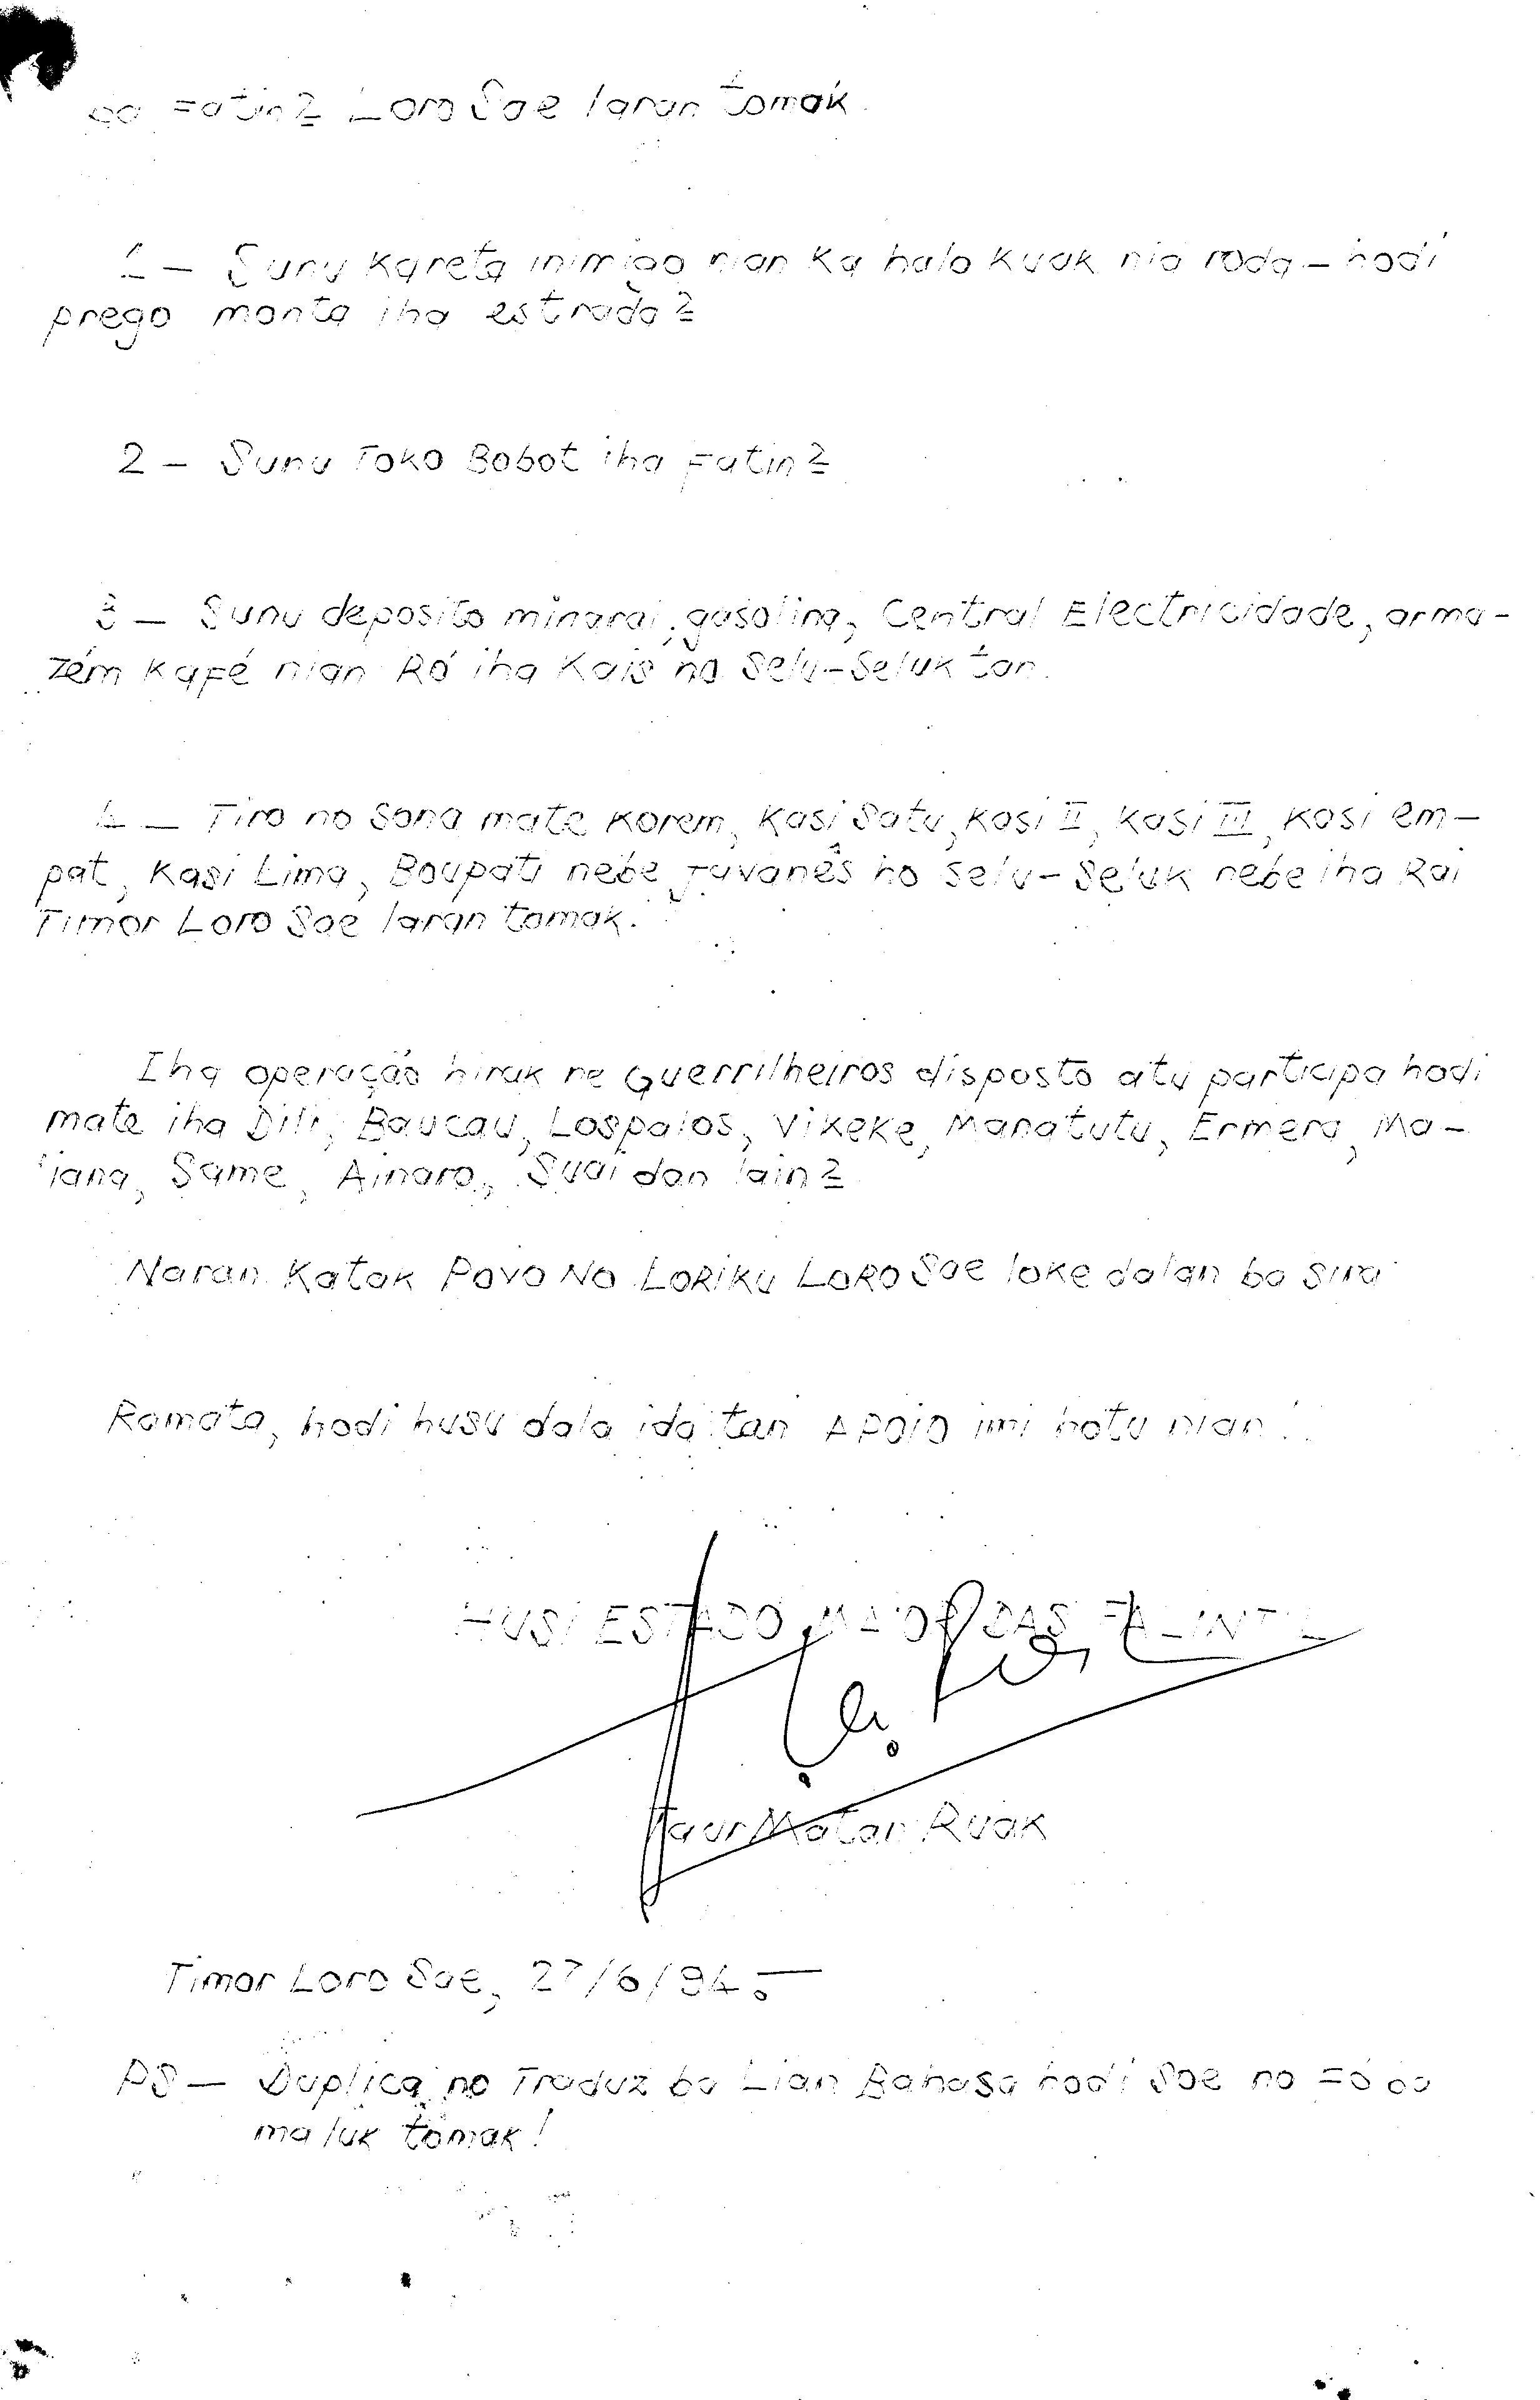 ba Fatin2 Loro Sae laran tomak.
1 – Sunu Kareta inimigo nian Ka halo Kuak nia roda – hodi
prego monta iha estrada2
2 – Sunu Toko Bobot iha Fatin2
3 – Sunu deposito minarai, gasolina, Central Electricidade, arma-
zém Kafé nian Ró iha Kais no Selu-Seluk tan.
4 – Tiro no Sona mate Korem, Kasi Satu, Kasi II, Kasi III, Kasi em-
pat, Kasi Lima, Boupati nebe Javanês ho Selu-Seluk nebe iha Rai
Timor Loro Sae laran tomak.
Iha operação hirak ne Guerrilheiros disposto atu participa hodi
mate iha Dili, Baucau, Lospalos, Vikeke, Manatutu, Ermera, Ma-
liana, Same, Ainaro, Suai dan lain2
Naran Katak Povo No LORIKU LORO Sae loke dalan ba sira
Ramata, hodi husu dala ida tan APOIO imi hotu nian!.
HUSI ESTADO MAIOR DAS FALINTIL
Taur Matan Ruak
Timor Loro Sae, 27/6/94.—
PS – Duplica no Traduz ba Lian Bahasa hodi Soe no Fó ba
maluk tomak!